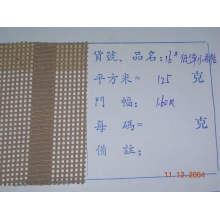 貨號、品名:16#
平方米= 125 克
門 幅: 160cm
每 碼= 克
備 註:
11.12.2004